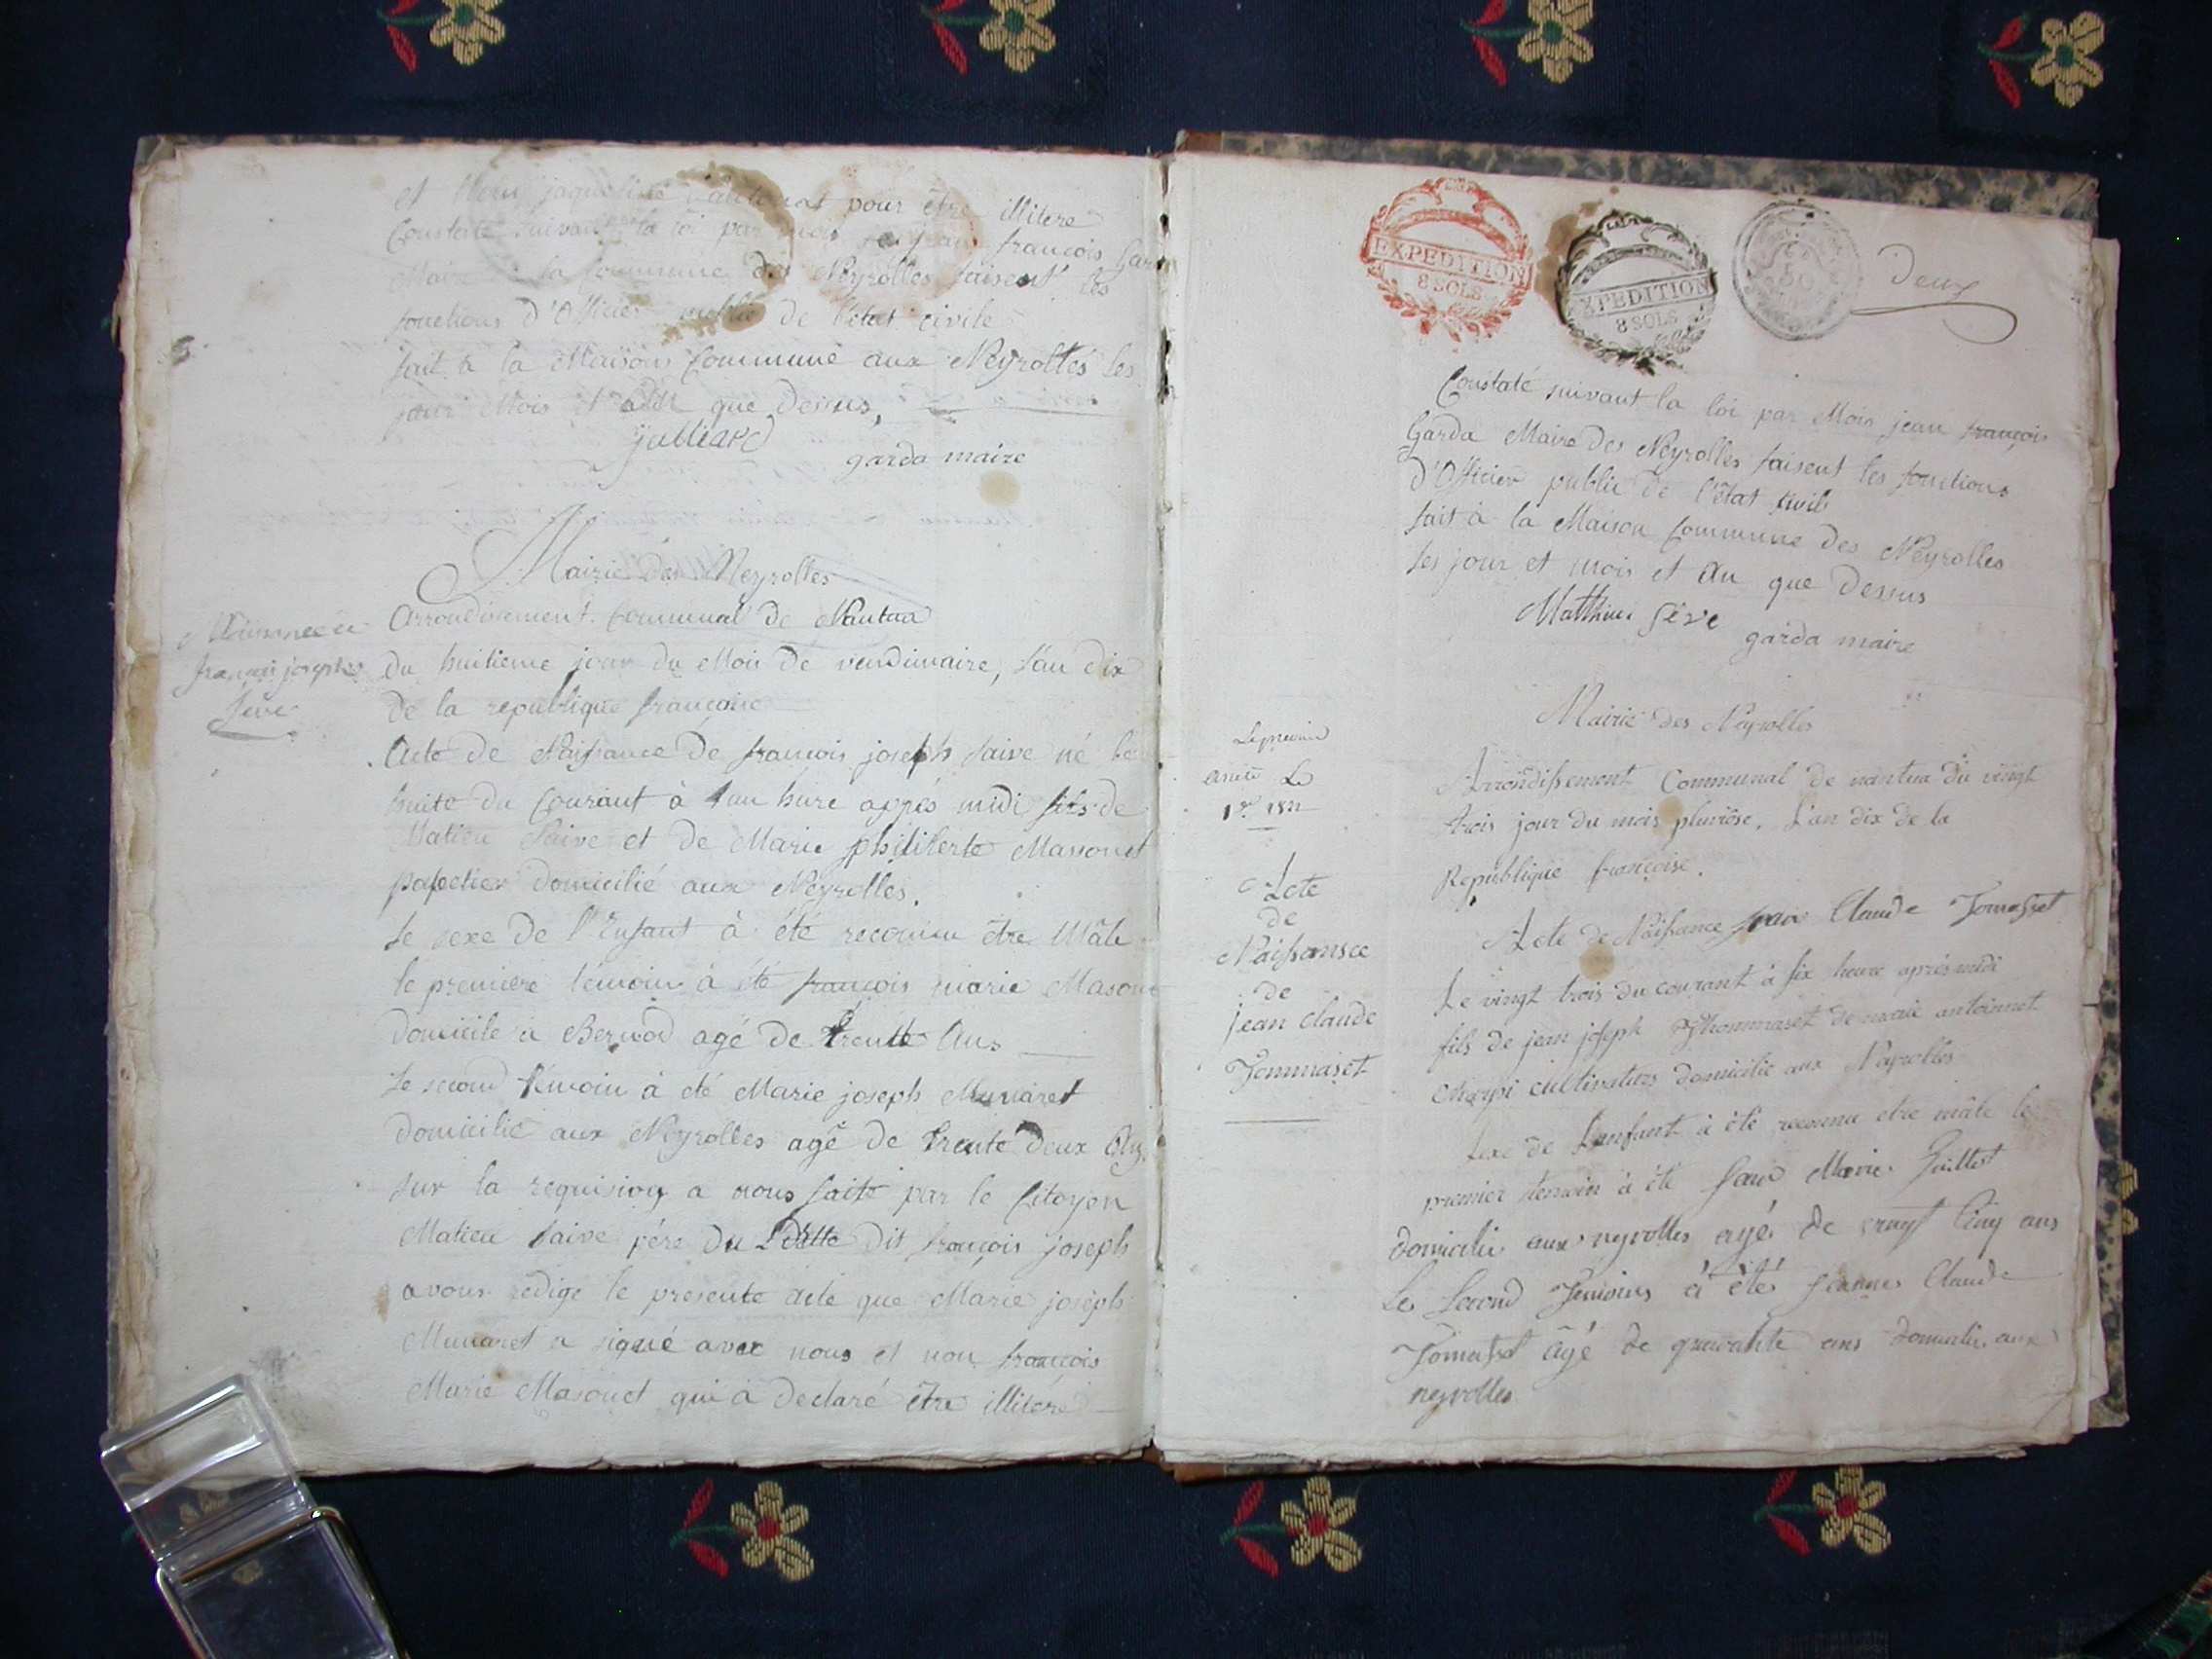 et non jaqueline pour être illitere
Constaté suivant la loi par mois jean francois Gar
Maire la Commune des Neyrolles faisent les
fonctions d'Officier public de l'état civile
fait à la Maison Commune aux Neyrolles les
jour Mois et an que dessus,
julliard
garda maire
Mairie des Neyrolles
Arrondisement Communal de Nantua
du huitieme jour du Mois de vendimaire, l'an dix
de la republique françoise
Naissance de
françois joseph
Seve
Acte de Naissance de francois joseph saive né le
huite du Courant à l'un hure après midi fils de
Matieu Saive et de Marie philiberte Massonet
papetier domicilié aux Neyrolles.
Le sexe de l'Enfant à été reconnu être Mâle
le premiere témoin à été francois marie Masonet
domicile à Bernod agé de trente Ans
Le second témoin à été Marie joseph Munaret
domicilié aux Neyrolles agé de trente deux Ans
sur la requision a nous faite par le Citoyen
Matieu saive pére du dit françois joseph
avons redige le presente acte que Marie joseph
Munaret a signé avec nous et non francois
Marie Masonet qui à declaré être illiteré
EXPEDITION
8 SOLS
EXPEDITION
8 SOLS
50
Deux
Constaté suivant la loi par Mois jean françois
Garda Maire des Neyrolles faisent les fonctions
d'Officier public de l'état civil
fait à la Maison Commune des Neyrolles
les jour et mois et An que dessus
Matthieu Séve
garda maire
Mairie des Neyrolles
Arrondissement Communal de nantua du vingt
trois jour du mois pluviôse, L'an dix de la
Republique françoise.
Le
1er
Acte
de
Naissansce
de
jean claude
Jommaset
Acte de Naissance jean Claude Tomasset
Le vingt trois du courant à six heure après midi
fils de jean joseph thommaset de marie antoinnet
cultivateurs domicilié aux Neyrolles
sexe de L'enfant à été reconnu etre mâle le
premier temoin à été Marie Juillet
domicilié aux neyrolles agé de vingt Cinq ans
Le Second Temoins à été Claude
Tomasset âgé de quarante ans domicilié aux
neyrolles